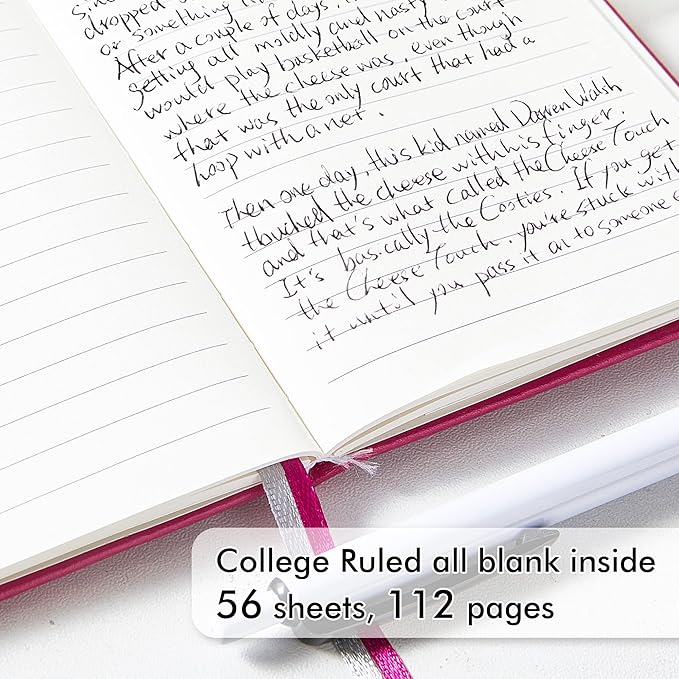 dropped
or something
After a couple of days, it
getting all moldly and nasty
would play basketball on the court
where the cheese was, even though
that was the only court that had a
hoop with a net.
Then one day, this kid named Darren Walsh
touched the cheese with his finger.
and that's what called the Cheese Touch
It's basically the Cooties. If you get
the Cheese Touch, you're stuck with
it until you pass it on to someone
College Ruled all blank inside
56 sheets, 112 pages